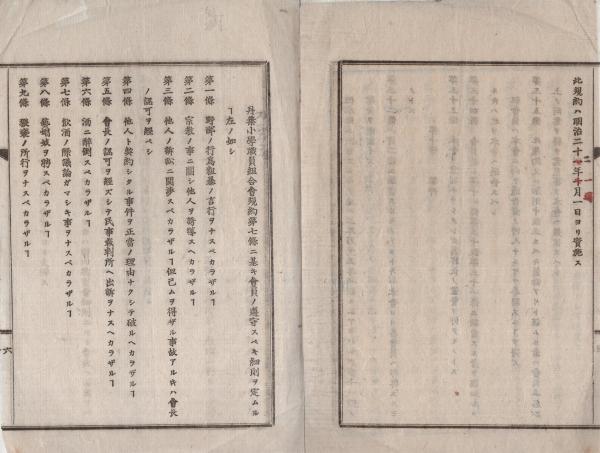 此規約ハ明治二十年十月一日ヨリ實施ス
二一
丹藥小學職員組合會規約第七條ニ基キ會員ノ遵守スベキ細則ヲ定ムル
ヿ左ノ如シ
第一條 野鄙ノ行爲粗暴ノ言行ヲナスベカラザルヿ
第二條 宗敎ノ事ニ關シ他人ヲ誹謗スベカラザルヿ
第三條 他人ノ訴訟ニ關渉スベカラザルヿ但已ムヲ得ザル事故アルヰハ會長
ノ認可ヲ經ベシ
第四條 他人ト契約シタル事件ヲ正當ノ理由ナクシテ破ルヘカラザルヿ
第五條 會長ノ認可ヲ經ズシテ民事裁判所ヘ出訴ヲナスヘカラザルヿ
第六條 酒ニ醉倒スベカラザルヿ
第七條 飮酒ノ際議論ガマシキ事ヲナスベカラザルヿ
第八條 藝娼妓ヲ聘スベカラザルヿ
第九條 猥褻ノ所行ヲナスベカラザルヿ
六